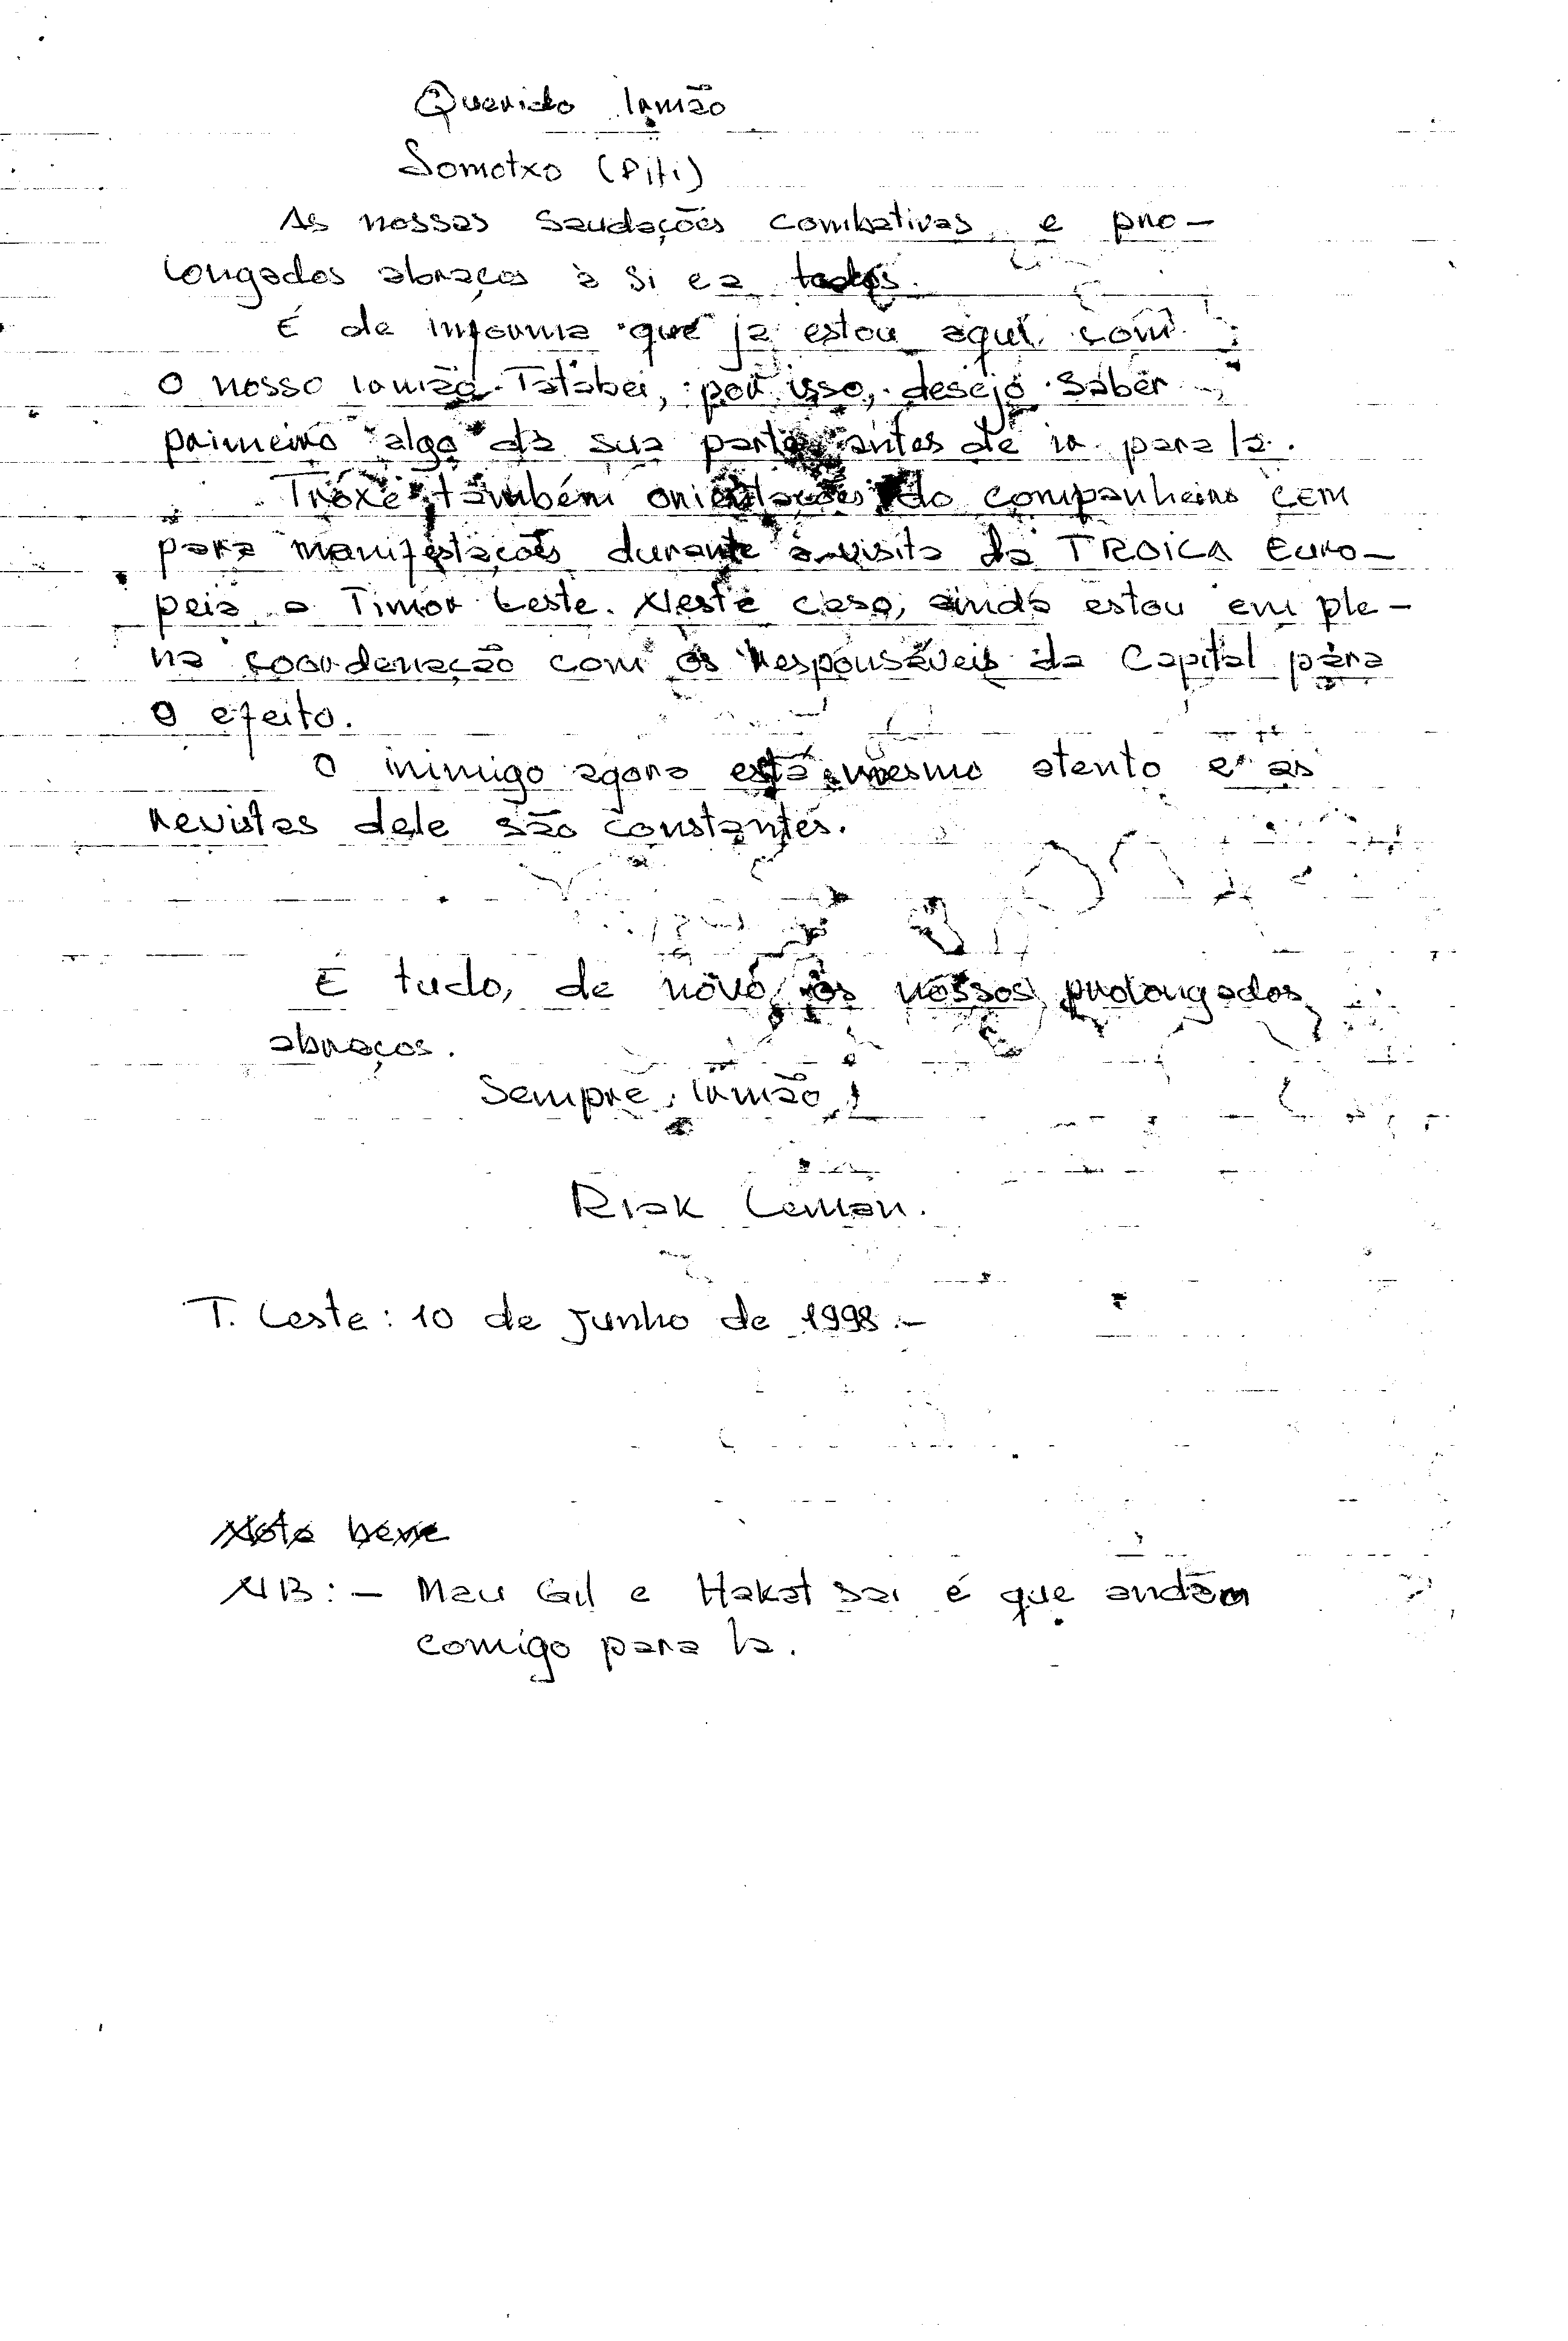 Querido Irmão
Somotxo (Piti)
As nossas saudações combativas e pro-
longados abraços à si e a todos.
É de informa que ja estou aqui com
o nosso irmão Tatabei, por isso, desejo saber
primeiro algo da sua parte antes de ir para la.
Troxe também orientações do companheiro CEM
para manifestações durante a visita da TROICA Euro-
peia a Timor Leste. Neste caso, ainda estou em ple-
na coordenação com os responsáveis da Capital para
o efeito.
O inimigo agora está mesmo atento e as
revistas dele são constantes.
É tudo, de novo, os nossos prolongados
abraços.
Sempre, irmão!
Riak Leman.
T. Leste: 10 de junho de 1998.-
Nota bene
NB: - Mau Gil e Hakat Sai é que andam
comigo para la.